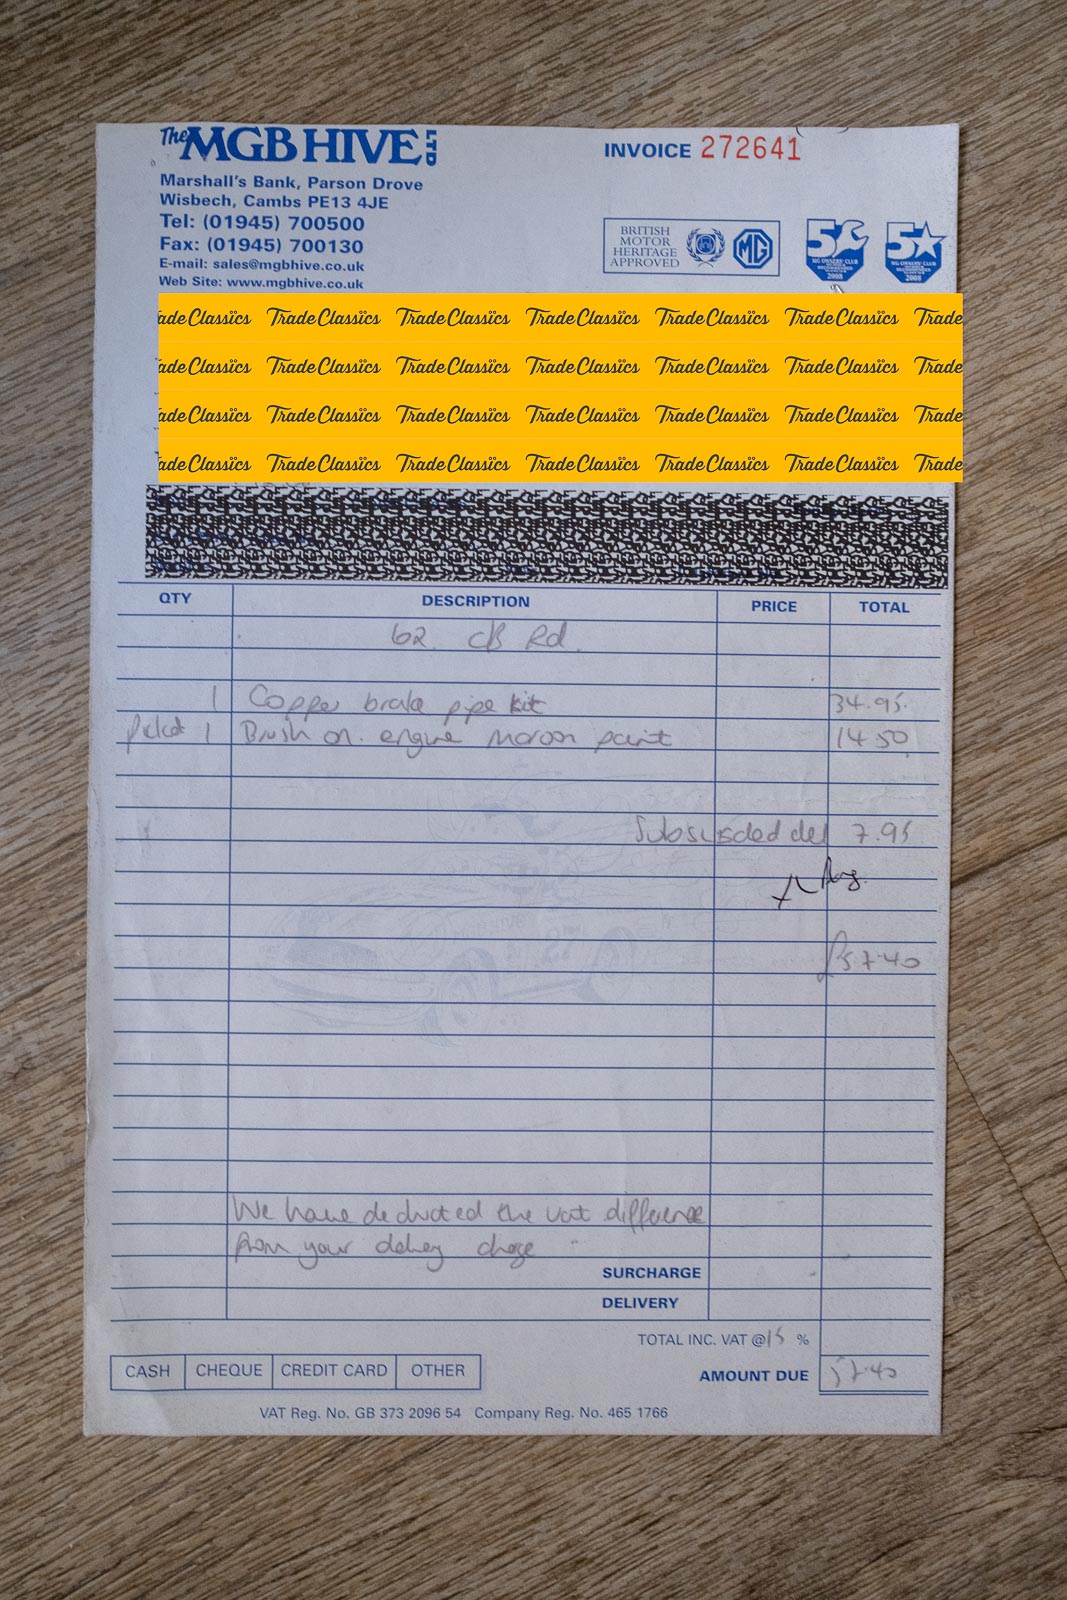 The MGB HIVE LTD
INVOICE 272641
Marshall's Bank, Parson Drove
Wisbech, Cambs PE13 4JE
Tel: (01945) 700500
Fax: (01945) 700130
E-mail: sales@mgbhive.co.uk
Web Site: www.mgbhive.co.uk
BRITISH
MOTOR
HERITAGE
APPROVED
MG
MG OWNERS' CLUB
RECOMMENDED
2008
5
MG OWNERS' CLUB
RECOMMENDED
2008
ade Classics Trade Classics Trade Classics Trade Classics Trade Classics Trade Classics Trade
ade Classics Trade Classics Trade Classics Trade Classics Trade Classics Trade Classics Trade
ade Classics Trade Classics Trade Classics Trade Classics Trade Classics Trade Classics Trade
ade Classics Trade Classics Trade Classics Trade Classics Trade Classics Trade Classics Trade
QTY DESCRIPTION PRICE TOTAL
62 CB Rd
1 Copper brake pipe kit 34.95
1 Brush on engine maroon paint 14.50
del 7.95
£57.40
We have deducted the vat difference
from your delivery charge
SURCHARGE
DELIVERY
TOTAL INC. VAT @ 15 %
CASH CHEQUE CREDIT CARD OTHER
AMOUNT DUE 57.40
VAT Reg. No. GB 373 2096 54 Company Reg. No. 465 1766